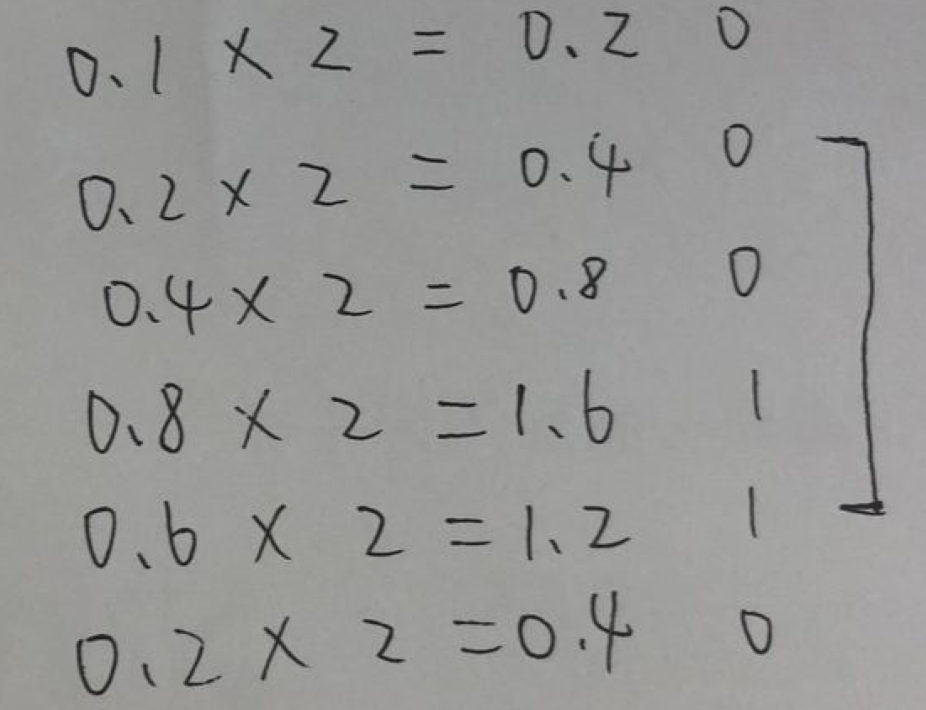 0.1 × 2 = 0.2 0
0.2 × 2 = 0.4 0
0.4 × 2 = 0.8 0
0.8 × 2 = 1.6 1
0.6 × 2 = 1.2 1
0.2 × 2 = 0.4 0